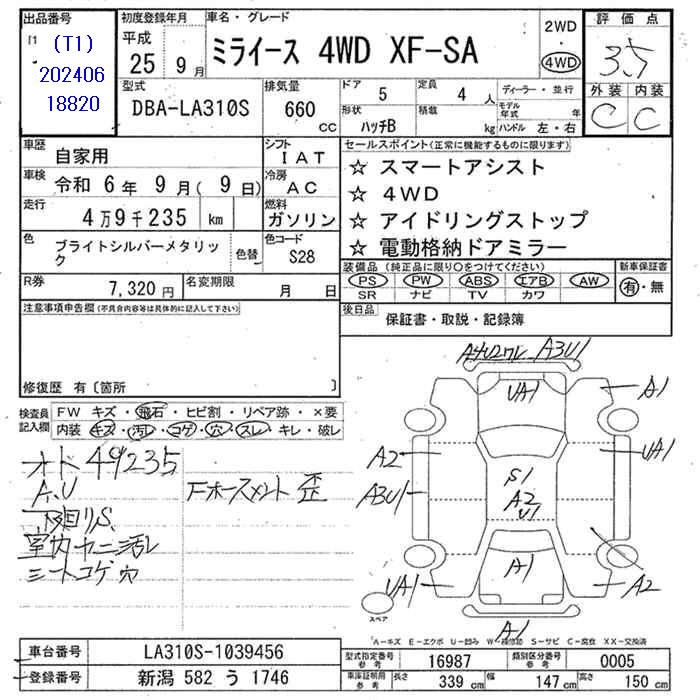 出品番号
[1 (T1)
202406
18820
初度登録年月
平成
25 9月
車名・グレード
ミライース 4WD XF-SA
2WD
・
4WD
評価点
3.5
外装 内装
C C
型式
DBA-LA310S
排気量
660 CC
ドア
5
定員
4 人
形状
ハッチB
積載
kg
ディーラー・並行
モデル年式 年
ハンドル 左・右
車歴
自家用
シフト
IAT
車検
令和 6年 9月( 9日)
冷房
AC
走行
4万9千235 km
燃料
ガソリン
色
ブライトシルバーメタリック
色替
色コード
S28
R券
7,320円
名変期限
月 日
セールスポイント(正常に機能するものに限ります)
☆ スマートアシスト
☆ 4WD
☆ アイドリングストップ
☆ 電動格納ドアミラー
装備品(純正品に限り○をつけてください)
PS PW ABS エアB AW
SR ナビ TV カワ
新車保証書
有・無
後日品
保証書・取説・記録簿
注意事項申告欄(不具合内容等は具体的に記入して下さい)
修復歴 有〔箇所 〕
検査員記入欄
FW キズ・飛石・ヒビ割・リペア跡・×要
内装 キズ・汚レ・コゲ・穴・スレ・キレ・破レ
オド 49235
A.U
下廻りS
室内ヤニ汚レ
シートコゲ穴
Fホースメント 歪
A4U2ワレ A3U1
UA1
A1
A2
UA1
A3U1
S1
A2
U1
A1
UA1
A2
A1
スペア
A-キズ E-エクボ U-凹み W-補修跡 S-サビ C-腐食 XX-交換済
車台番号
LA310S-1039456
登録番号
新潟 582 う 1746
型式指定番号
参考
16987
類別区分番号
参考
0005
車庫証明用
参考
長さ
339 cm
幅
147 cm
高さ
150 cm